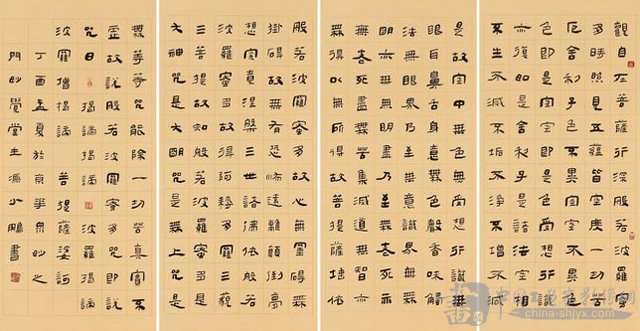 觀自在菩薩行深般若波羅蜜
多時照見五蘊皆空度一切苦
厄舍利子色不異空空不異色
色即是空空即是色受想行識
亦復如是舍利子是諸法空相
不生不滅不垢不淨不增不減
是故空中無色無受想行識無
眼耳鼻舌身意無色聲香味觸
法無眼界乃至無意識界無無
明亦無無明盡乃至無老死亦
無老死盡無苦集滅道無智亦
無得以無所得故菩提薩埵依
般若波羅蜜多故心無罣礙無
罣礙故無有恐怖遠離顛倒夢
想究竟涅槃三世諸佛依般若
波羅蜜多故得阿耨多羅三藐
三菩提故知般若波羅蜜多是
大神咒是大明咒是無上咒是
無等等咒能除一切苦真實不
虛故說般若波羅蜜多咒即說
咒曰揭諦揭諦波羅揭諦
波羅僧揭諦菩提薩婆訶
丁酉孟夏於京華妙之
門妙覺堂主馮小鵬書
china-shjyx.com